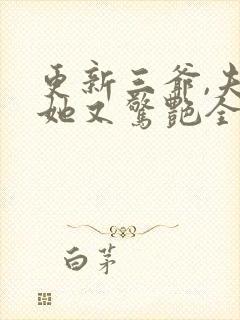 更新三爷,夫
她又惊艳全
白茅